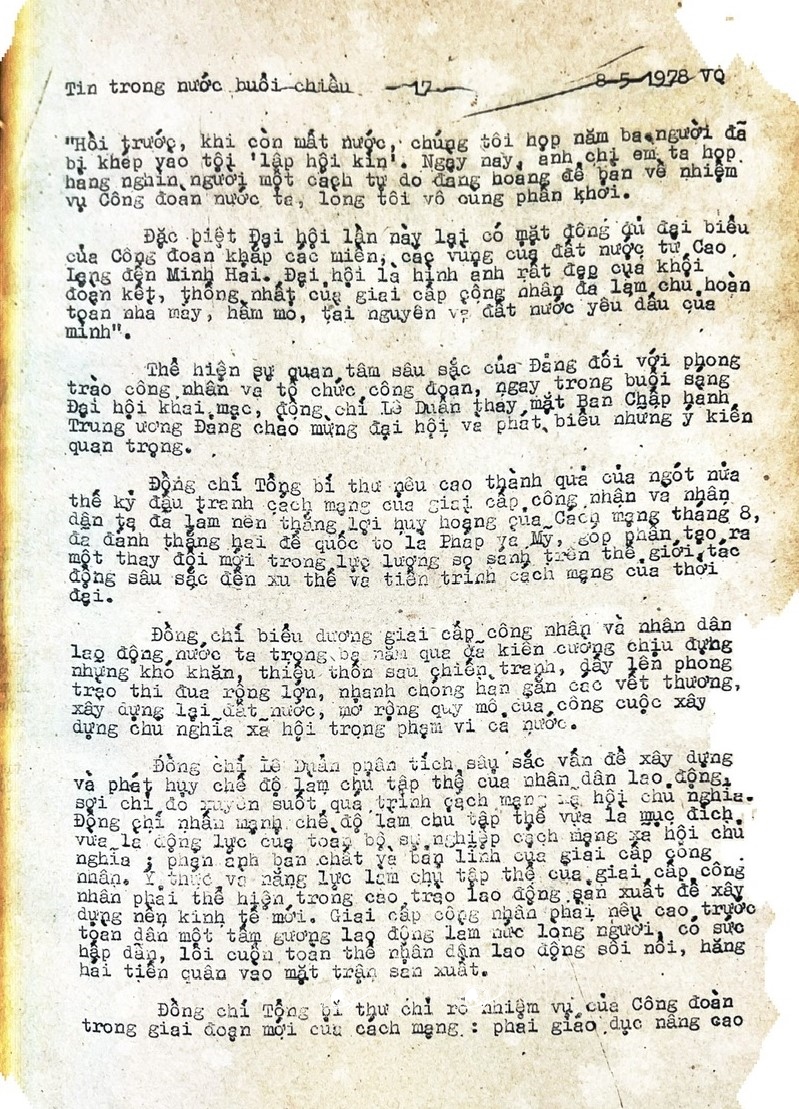 Tin trong nước buổi chiều -17- 8-5-1978 VQ
"Hồi trước, khi còn mất nước, chúng tôi họp năm ba người đã
bị khép vào tội 'lập hội kín'. Ngày nay, anh chị em ta họp
hàng nghìn người một cách tự do đàng hoàng để bàn về nhiệm
vụ Công đoàn nước ta, lòng tôi vô cùng phấn khởi.
Đặc biệt Đại hội lần này lại có mặt đông đủ đại biểu
của Công đoàn khắp các miền, các vùng của đất nước từ Cao
Lạng đến Minh Hải. Đại hội là hình ảnh rất đẹp của khối
đoàn kết, thống nhất của giai cấp công nhân đã làm chủ hoàn
toàn nhà máy, hầm mỏ, tài nguyên và đất nước yêu dấu của
mình".
Thể hiện sự quan tâm sâu sắc của Đảng đối với phong
trào công nhân và tổ chức công đoàn, ngay trong buổi sáng
Đại hội khai mạc, đồng chí Lê Duẩn thay mặt Ban Chấp hành
Trung ương Đảng chào mừng đại hội và phát biểu những ý kiến
quan trọng.
Đồng chí Tổng bí thư nêu cao thành quả của ngót nửa
thế kỷ đấu tranh cách mạng của giai cấp công nhân và nhân
dân ta đã làm nên thắng lợi huy hoàng của Cách mạng tháng 8,
đã đánh thắng hai đế quốc to là Pháp và Mỹ, góp phần tạo ra
một thay đổi mới trong lực lượng so sánh trên thế giới, tác
động sâu sắc đến xu thế và tiến trình cách mạng của thời
đại.
Đồng chí biểu dương giai cấp công nhân và nhân dân
lao động nước ta trong ba năm qua đã kiên cường chịu đựng
những khó khăn, thiếu thốn sau chiến tranh, dấy lên phong
trào thi đua rộng lớn, nhanh chóng hàn gắn các vết thương,
xây dựng lại đất nước, mở rộng quy mô của công cuộc xây
dựng chủ nghĩa xã hội trong phạm vi cả nước.
Đồng chí Lê Duẩn phân tích sâu sắc vấn đề xây dựng
và phát huy chế độ làm chủ tập thể của nhân dân lao động,
sợi chỉ đỏ xuyên suốt quá trình cách mạng xã hội chủ nghĩa.
Đồng chí nhấn mạnh chế độ làm chủ tập thể vừa là mục đích
vừa là động lực của toàn bộ sự nghiệp cách mạng xã hội chủ
nghĩa ; phản ánh bản chất và bản lĩnh của giai cấp công
nhân. Ý thức và năng lực làm chủ tập thể của giai cấp công
nhân phải thể hiện trong cao trào lao động sản xuất để xây
dựng nền kinh tế mới. Giai cấp công nhân phải nêu cao trước
toàn dân một tấm gương lao động làm nức lòng người, có sức
hấp dẫn, lôi cuốn toàn thể nhân dân lao động sôi nổi, hăng
hái tiến quân vào mặt trận sản xuất.
Đồng chí Tổng bí thư chỉ rõ nhiệm vụ của Công đoàn
trong giai đoạn mới của cách mạng : phải giáo dục nâng cao